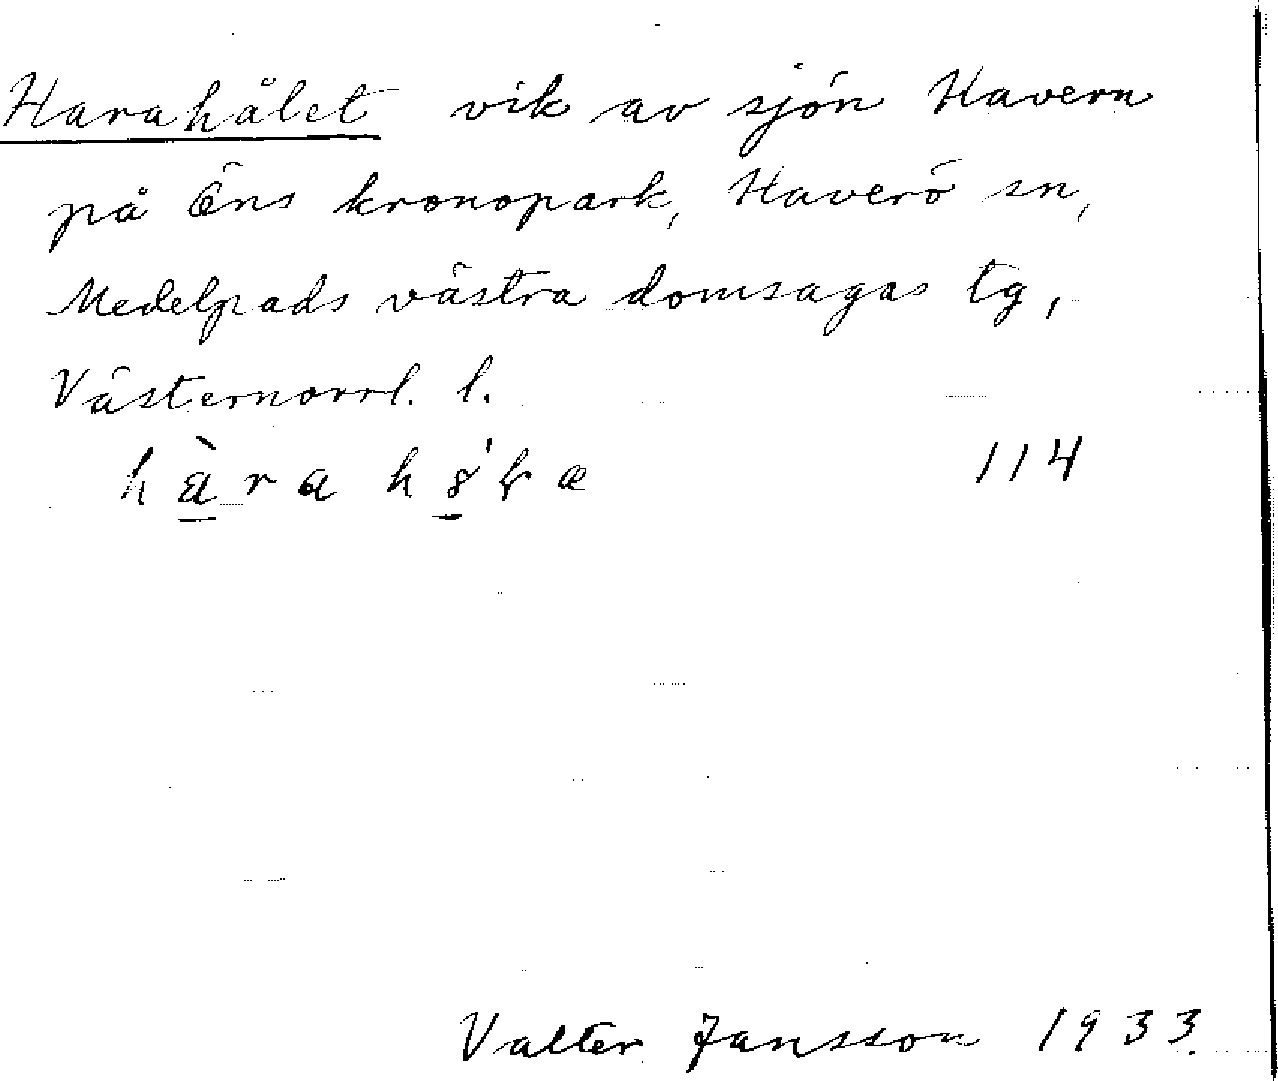 Harahålet vik av sjön Havern
på Öns kronopark, Haverö sn,
Medelpads västra domsagas tg,
Västernorrl. l.
hàra 114
Valter Jansson 1933.